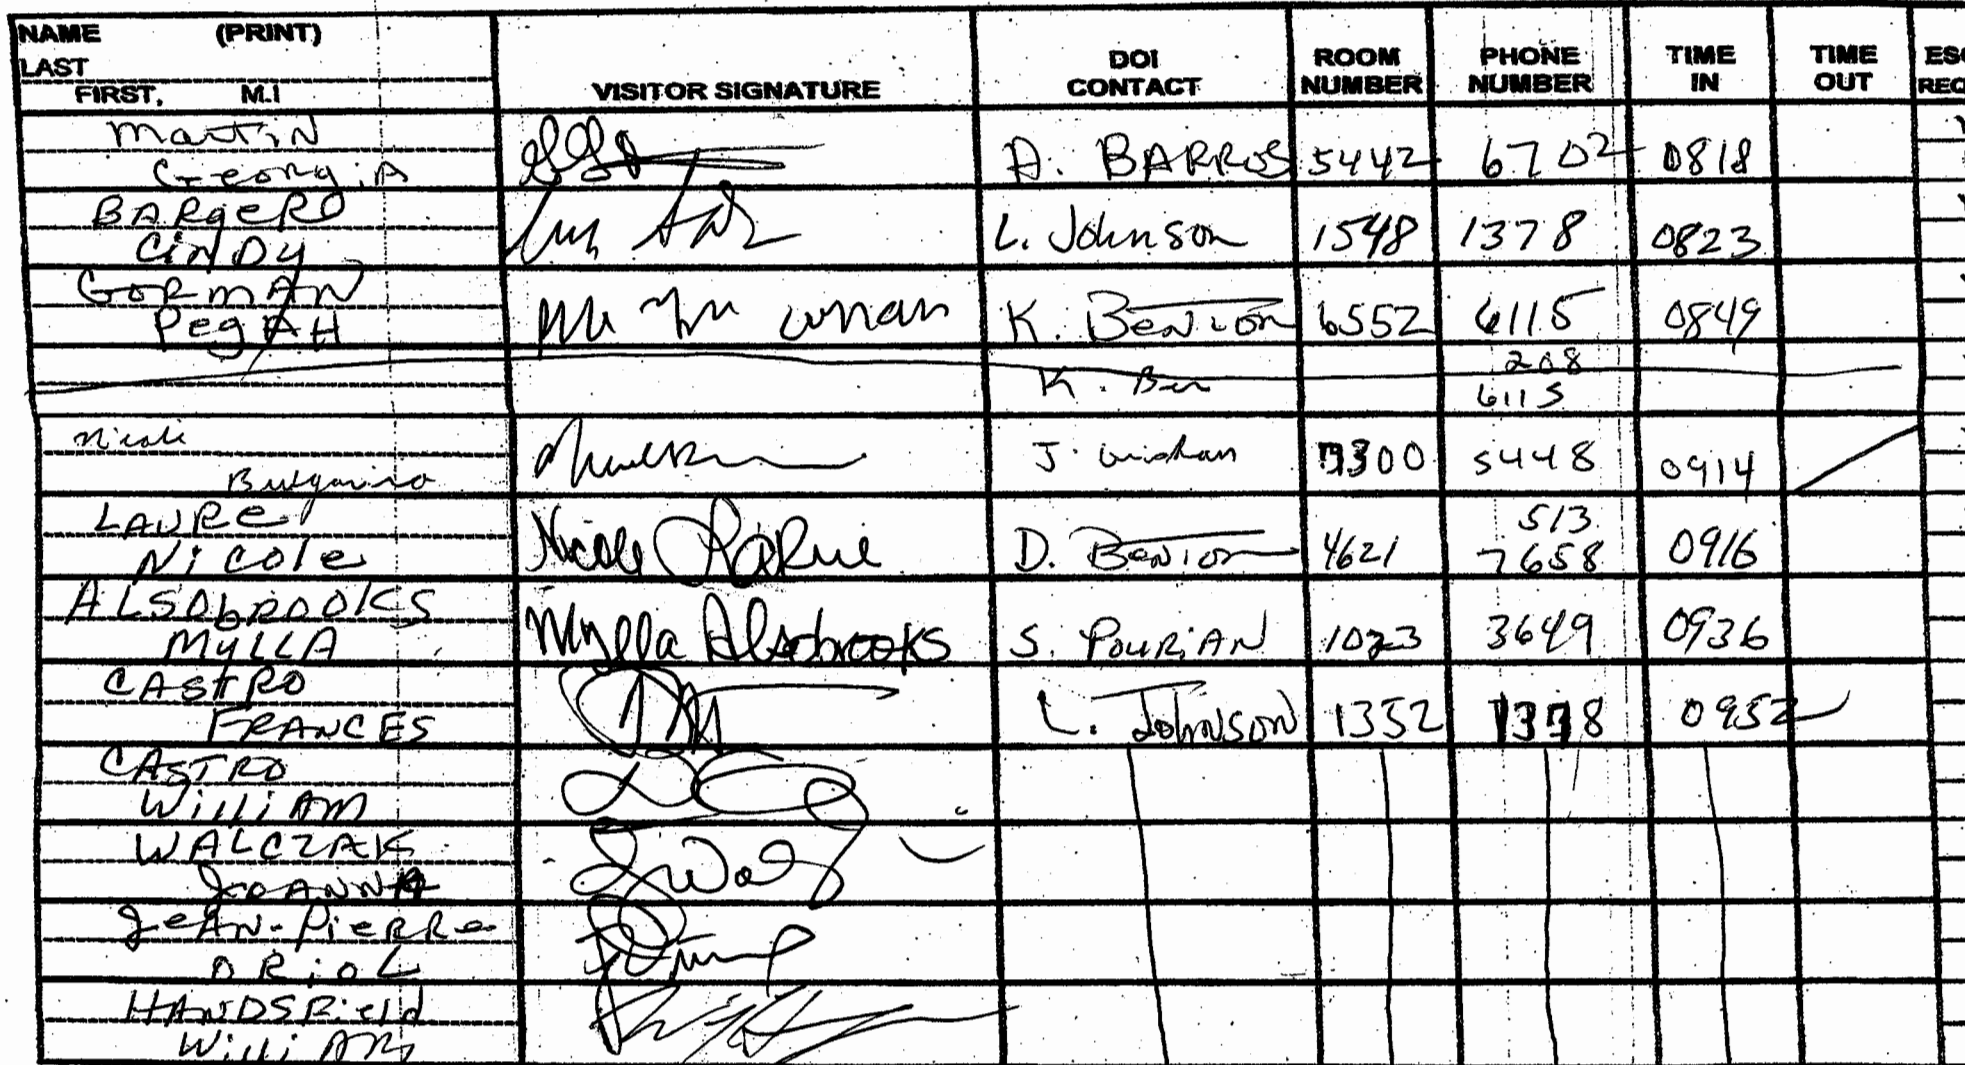 NAME (PRINT)
LAST
FIRST, M.I
VISITOR SIGNATURE
DOI CONTACT
ROOM NUMBER
PHONE NUMBER
TIME IN
TIME OUT
MartiN
GeorgiA A. BARROS 5442 6702 0818
BARgeRO
CiNDy L. Johnson 1548 1378 0823
GORMAN
PegAH K. BeNTON 6552 6115 0849
208
K. Ben
6115
J. 7300 5448 0914
LAURel 513
Nicole Nicole D. BeNTON 4621 7658 0916
ALSObROOKS
MyLLA Mylla Alsobrooks S. POURiAN 1023 3649 0936
CASTRO
FRANCES L. JOHNSON 1352 1378 0952
CASTRO
WilliAM
WALCZAK
JOANNA
JeAN-PieRRe
ORioL
HANDSField
WilliAM